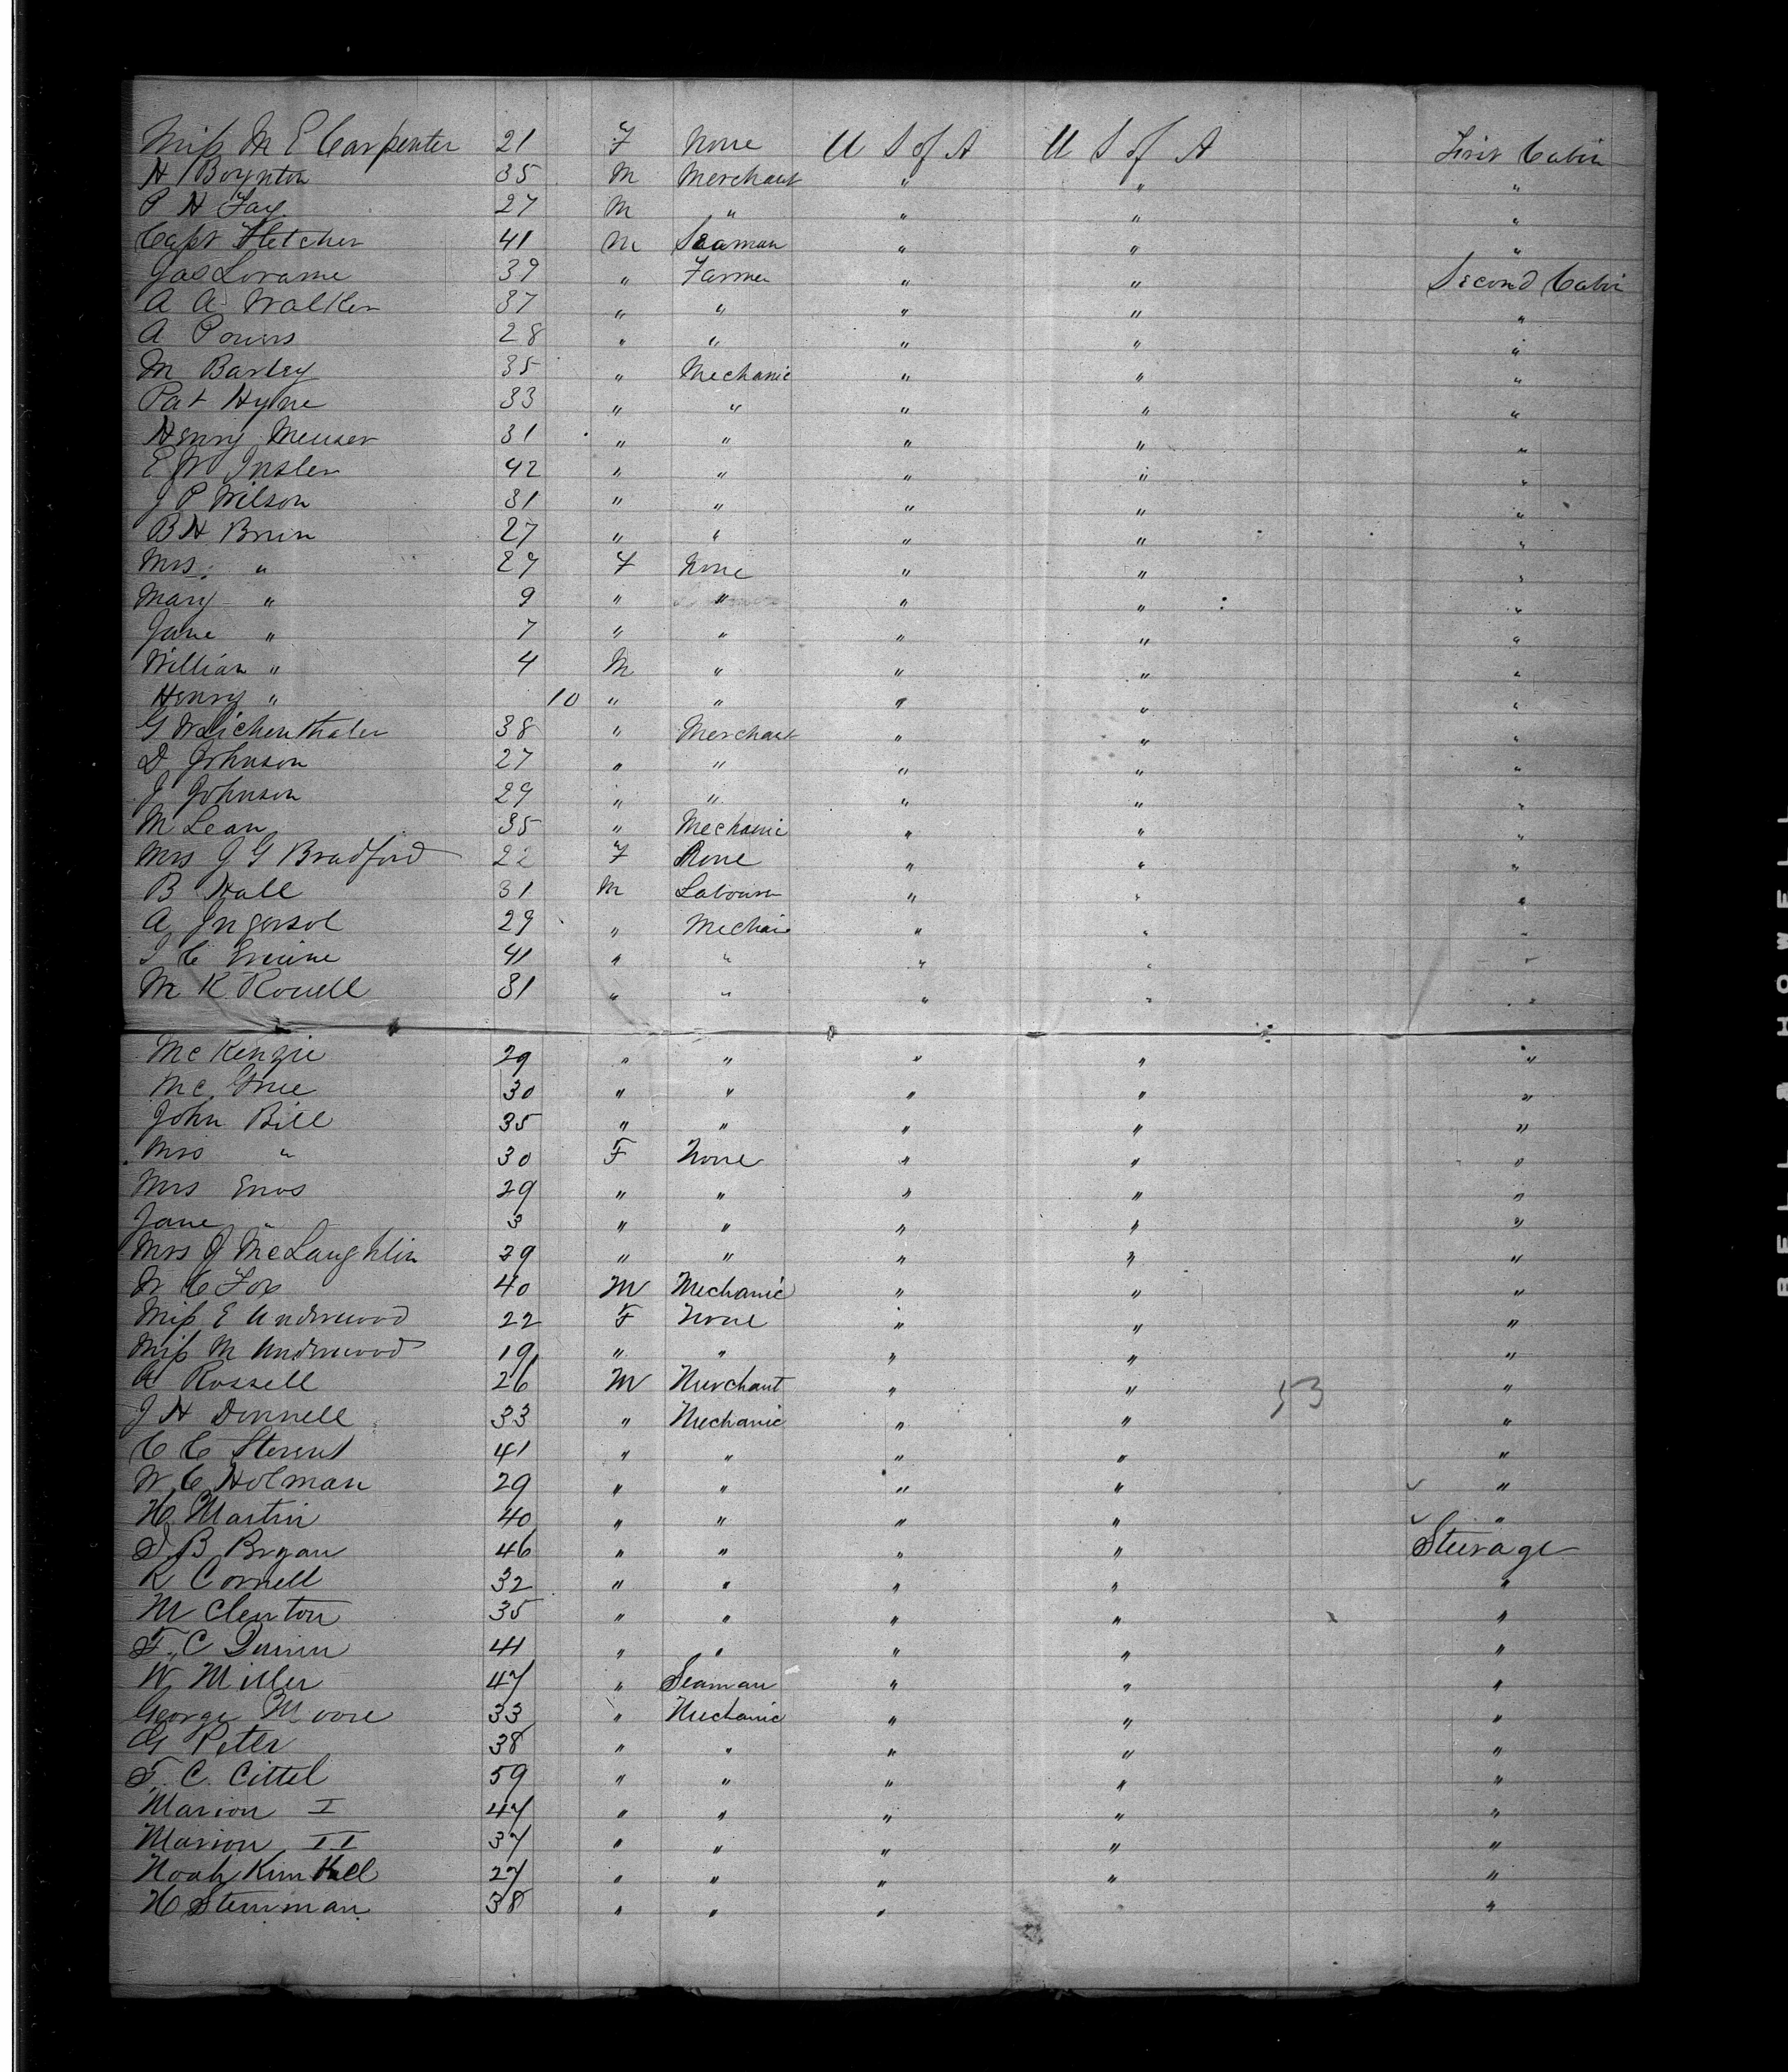 Miss M E Carpenter 21 F None U S of A U S of A First Cabin
H Boynton 35 M Merchant " " "
P H Fay 27 M " " " "
Capt Fletcher 41 M Seaman " " "
Jas Lorame 39 " Farmer " " Second Cabin
A A Walker 37 " " " " "
A Powers 28 " " " " "
M Barley 35 " Mechanic " " "
Pat Hyne 33 " " " " "
Henry Meuser 31 " " " " "
E W Insler 42 " " " " "
J P Wilson 31 " " " " "
B H Brun 27 " " " " "
Mrs " 27 F None " " "
Mary " 9 " " " " "
Jane " 7 " " " " "
William " 4 M " " " "
Henry " 10 " " " " "
G W Lichenthaler 38 " Merchant " " "
D Johnson 27 " " " " "
J Johnson 29 " " " " "
M Lean 35 " Mechanic " " "
Mrs J G Bradford 22 F None " " "
B Hall 31 M Labourer " " "
A Ingersol 29 " Mechanic " " "
C 41 " " " " "
M K Rouell 31 " " " " "
McKenzie 29 " " " " "
Mc 30 " " " " "
John Bill 35 " " " " "
Mrs " 30 F None " " "
Mrs Enos 29 " " " " "
Jane " 3 " " " " "
Mrs J McLaughlin 29 " " " " "
W C Fox 40 M Mechanic " " "
Miss E Underwood 22 F None " " "
Miss M Underwood 19 " " " " "
A Rossell 26 M Merchant " " 53 "
J H Donnell 33 " Mechanic " " "
C C Sterent 41 " " " " "
W C Holman 29 " " " " "
H Martin 40 " " " " "
S B Bryan 46 " " " " Steerage
R Cornell 32 " " " " "
M Clenton 35 " " " " "
F. C Quinn 41 " " " " "
W Miller 47 " Seaman " " "
George Moore 33 " Mechanic " " "
G Peter 38 " " " " "
F. C. Cittel 59 " " " " "
Marion I 47 " " " " "
Marion II 37 " " " " "
Noah Kimball 27 " " " " "
H Stemman 38 " " " "
BELL & HOWELL